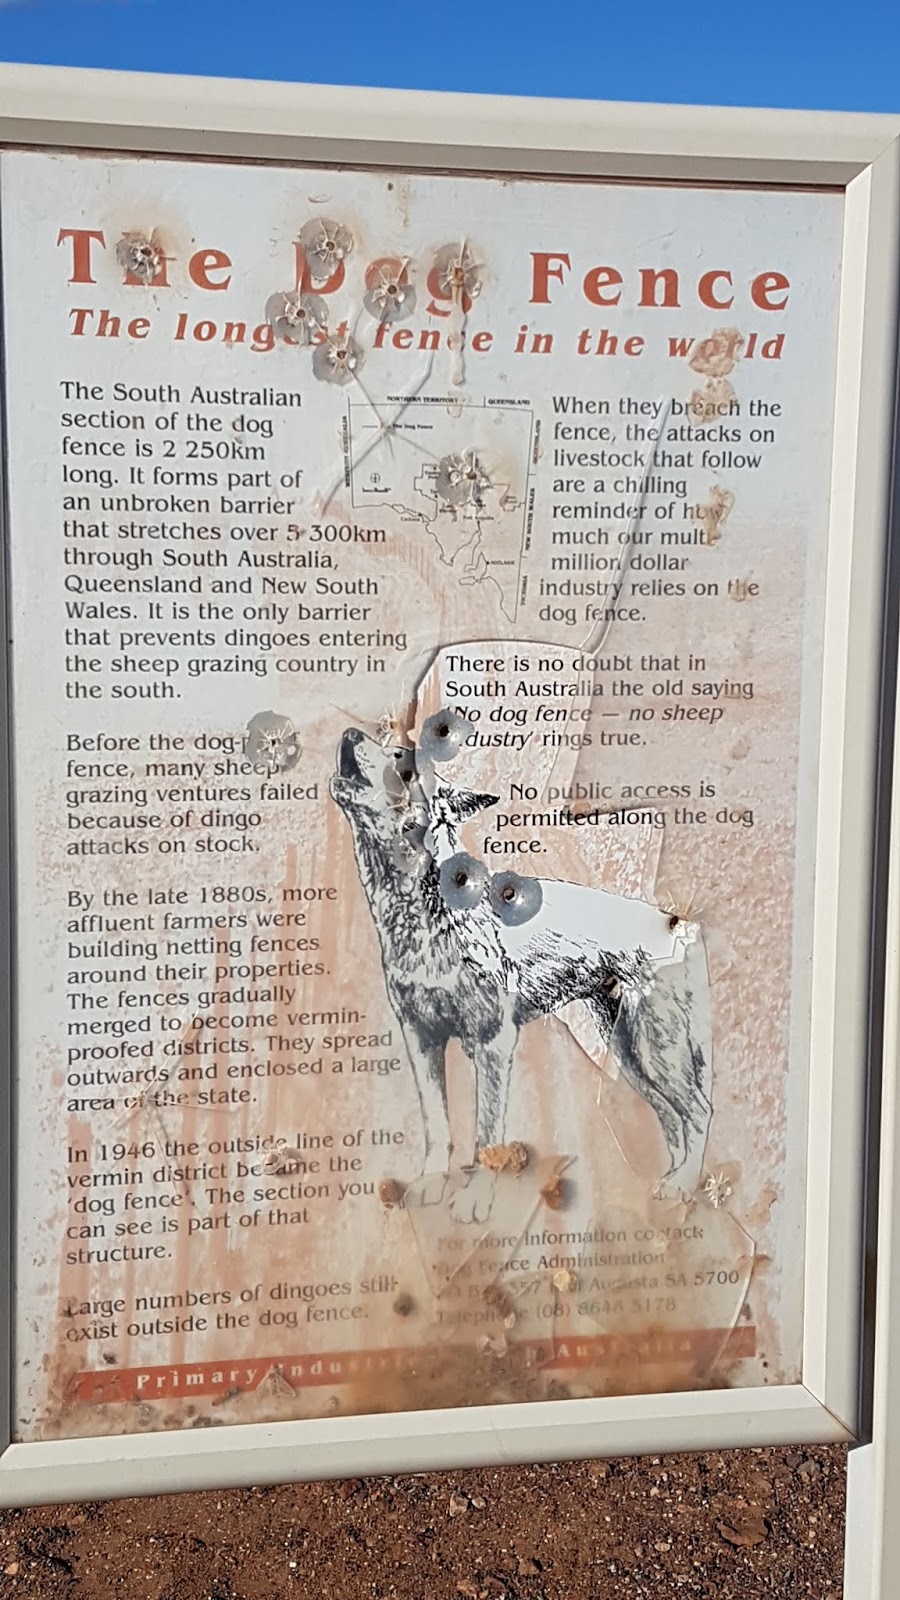 The Dog Fence
The longest fence in the world
The South Australian
section of the dog
fence is 2 250km
long. It forms part of
an unbroken barrier
that stretches over 5 300km
through South Australia,
Queensland and New South
Wales. It is the only barrier
that prevents dingoes entering
the sheep grazing country in
the south.
Before the dog-
fence, many sheep
grazing ventures failed
because of dingo
attacks on stock.
By the late 1880s, more
affluent farmers were
building netting fences
around their properties.
The fences gradually
merged to become vermin-
proofed districts. They spread
outwards and enclosed a large
area of the state.
In 1946 the outside line of the
vermin district became the
'dog fence'. The section you
can see is part of that
structure.
Large numbers of dingoes still
exist outside the dog fence.
NORTHERN TERRITORY
QUEENSLAND
The Dog Fence
WESTERN AUSTRALIA
QUEENSLAND
NEW SOUTH WALES
ADELAIDE
VICTORIA
When they breach the
fence, the attacks on
livestock that follow
are a chilling
reminder of how
much our multi-
million dollar
industry relies on the
dog fence.
There is no doubt that in
South Australia the old saying
'No dog fence — no sheep
dustry' rings true.
No public access is
permitted along the dog
fence.
For more Information contact:
Fence Administration
Augusta SA 5700
Telephone (08) 8648 5178
Primary Industries Australia